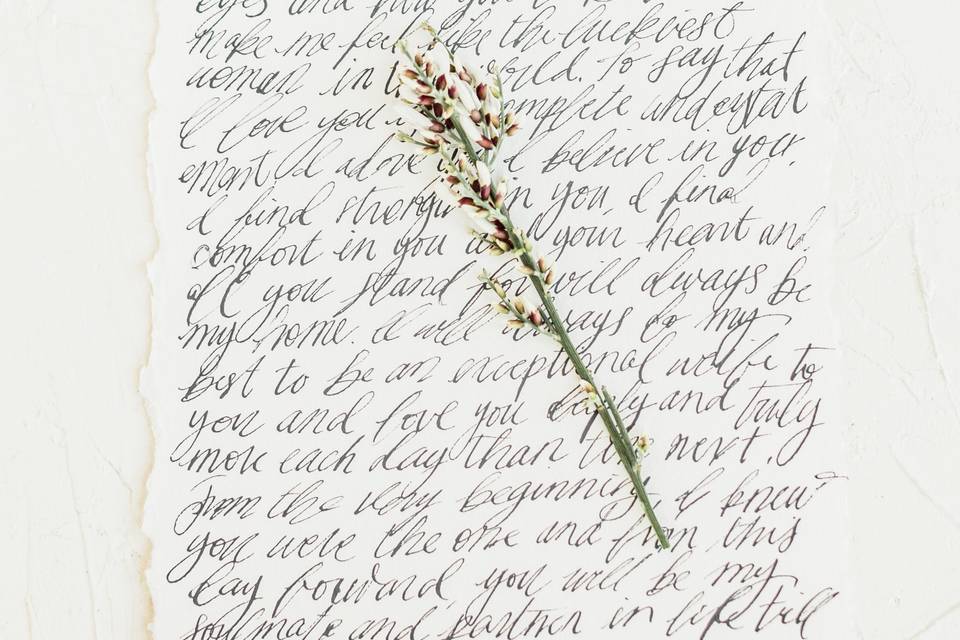 eyes and how you
make me feel like the luckiest
woman in the world. To say that
I love you is complete understat
ement I adore I believe in you.
I find strength in you, I find
comfort in you and your heart and
all you stand for will always be
my home. I will always do my
best to be an exceptional wife to
you and love you deeply and truly
more each day than the next.
From the very beginning, I knew
you were the one and from this
day forward, you will be my
soulmate and partner in life till